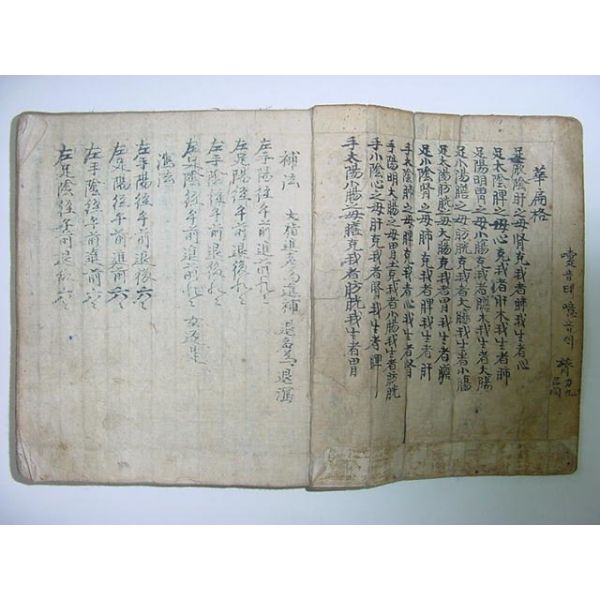 華扁格
足厥陰肝之母腎克我者肺我生者心
足太陰脾之母心克我者肝木我生者肺
足陽明胃之母小腸克我者膽木我生者大腸
足小陽膽之母膀胱克我者大腸我生者小腸
足太陽膀胱之母大腸克我者胃我生者膽
足小陰腎之母肺克我者脾我生者肝
手太陰肺之母脾克我者心我生者腎
手陽明大腸之母胃土克我者小腸我生者膀胱
手小陰心之母肝克我者腎我生者脾
手太陽小腸之母膽克我者膀胱我生者胃
補法 大指進者為進補 退為退瀉
左手陽徑午前進前九
左足陽徑午前退後九
左手陰徑午前退後九
左足陰徑午前進前九
瀉法
左手陽徑午前退後六
左足陽徑午前進前六
左手陰徑午前進前六
左足陰徑午前退後六